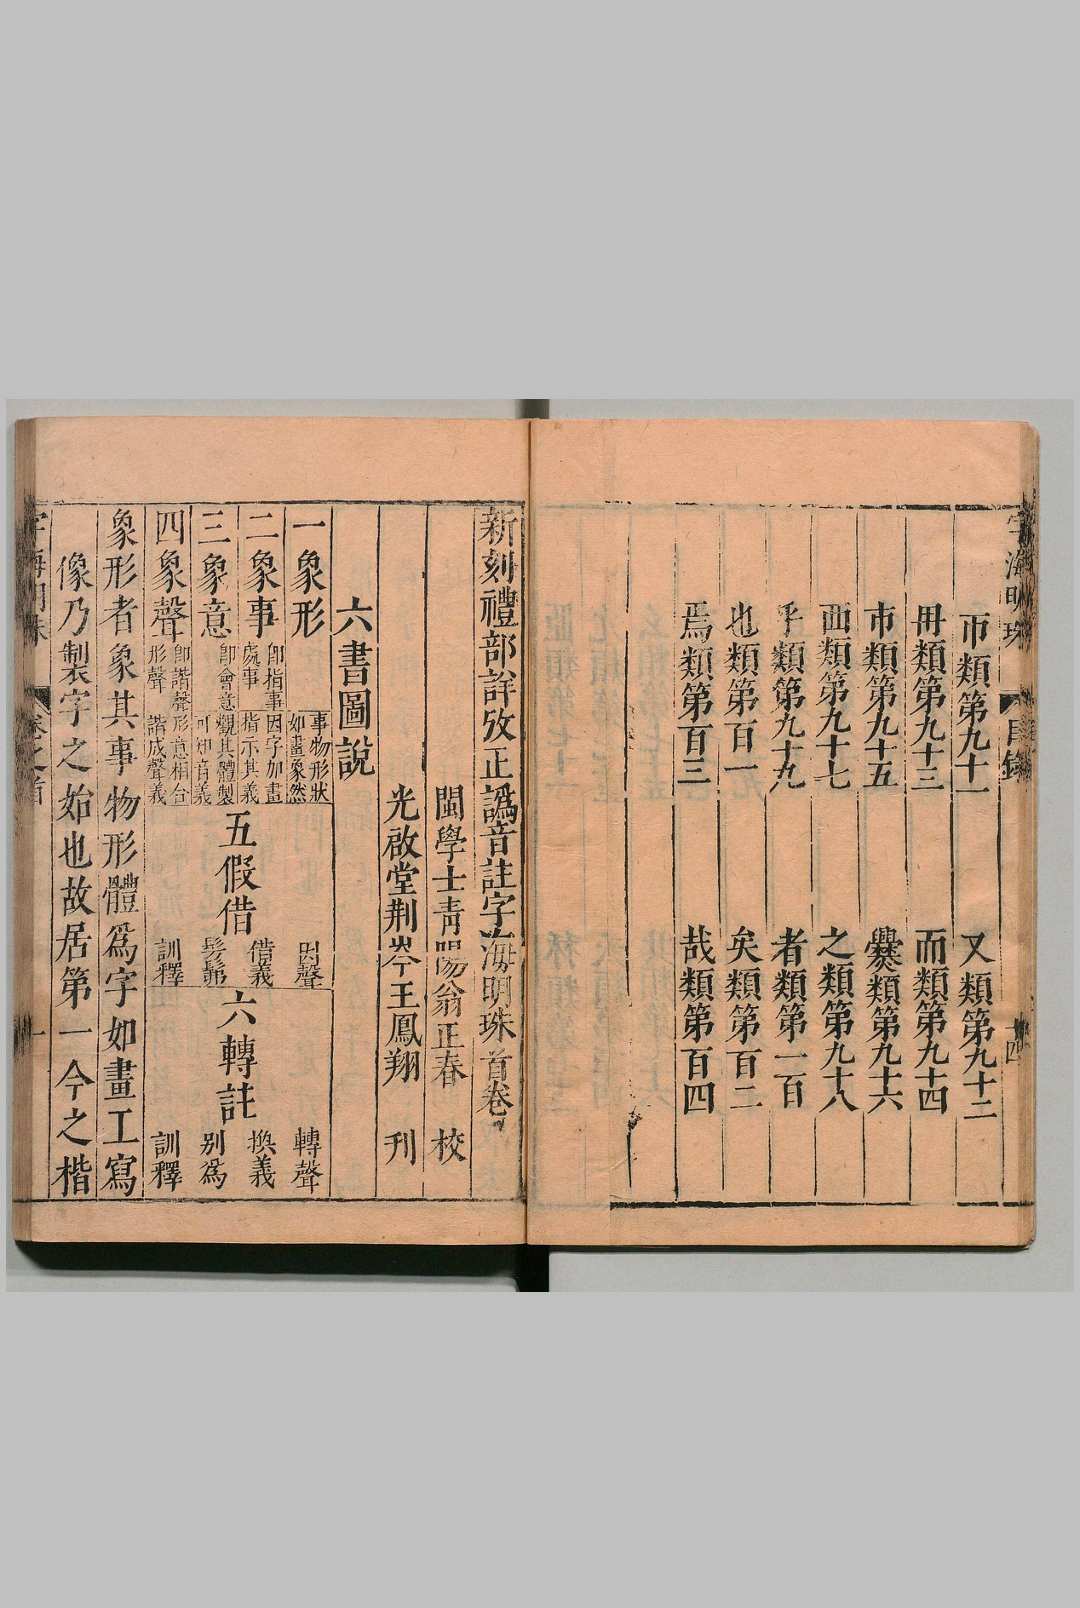 字海明珠 目錄 十四
帀類第九十一 又類第九十二
冊類第九十三 而類第九十四
市類第九十五 爨類第九十六
西類第九十七 之類第九十八
乎類第九十九 者類第一百
也類第百一 矣類第百二
焉類第百三 哉類第百四
新刻禮部詳攷正譌音註字海明珠首卷
閩學士青陽翁正春 校
光啟堂荆岑王鳳翔 刊
六書圖說
一象形 事物形狀如畫象然
二象事 即指事處事 因字加畫指示其義
三象意 即會意 觀其體製可知音義
四象聲 即諧聲形聲 形意相合諧成聲義
五假借 因聲 借義 髣髴 訓釋
六轉註 轉聲 換義 別爲 訓釋
象形者象其事物形體爲字如畫工寫
像乃製字之始也故居第一今之楷
字海明珠 卷之首 一